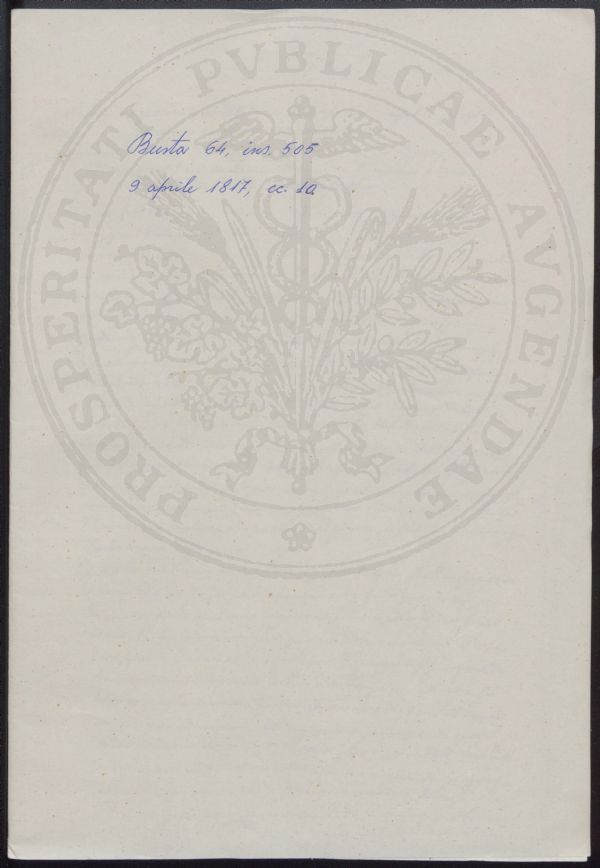 PROSPERITATI PVBLICAE AVGENDAE
Busta 64, ins. 505
9 aprile 1817, cc. 10